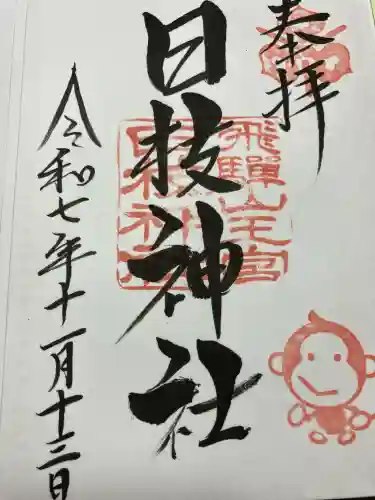 奉拝
日枝神社
飛騨山王宮
日枝神社
令和七年十一月十三日